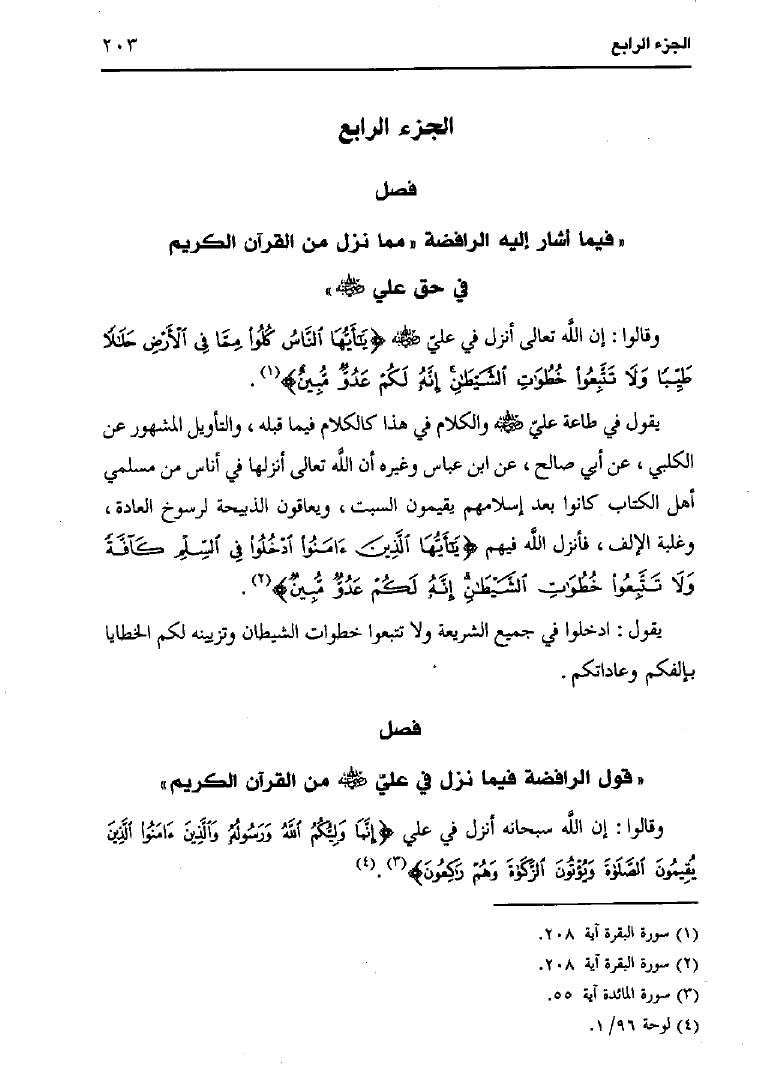 الجزء الرابع ٢٠٣
الجزء الرابع
فصل
«فيما أشار إليه الرافضة «مما نزل من القرآن الكريم
في حق علي رضي الله عنه»
وقالوا: إن الله تعالى أنزل في عليّ رضي الله عنه ﴿يَٰٓأَيُّهَا ٱلنَّاسُ كُلُوا۟ مِمَّا فِى ٱلْأَرْضِ حَلَٰلًا
طَيِّبًا وَلَا تَتَّبِعُوا۟ خُطُوَٰتِ ٱلشَّيْطَٰنِ ۚ إِنَّهُۥ لَكُمْ عَدُوٌّ مُّبِينٌ﴾(١).
يقول في طاعة عليّ رضي الله عنه والكلام في هذا كالكلام فيما قبله، والتأويل المشهور عن
الكلبي، عن أبي صالح، عن ابن عباس وغيره أن الله تعالى أنزلها في أناس من مسلمي
أهل الكتاب كانوا بعد إسلامهم يقيمون السبت، ويعاقون الذبيحة لرسوخ العادة،
وغلبة الإلف، فأنزل الله فيهم ﴿يَٰٓأَيُّهَا ٱلَّذِينَ ءَامَنُوا۟ ٱدْخُلُوا۟ فِى ٱلسِّلْمِ كَآفَّةً
وَلَا تَتَّبِعُوا۟ خُطُوَٰتِ ٱلشَّيْطَٰنِ ۚ إِنَّهُۥ لَكُمْ عَدُوٌّ مُّبِينٌ﴾(٢).
يقول: ادخلوا في جميع الشريعة ولا تتبعوا خطوات الشيطان وتزيينه لكم الخطايا
بإلفكم وعاداتكم.
فصل
«قول الرافضة فيما نزل في عليّ رضي الله عنه من القرآن الكريم»
وقالوا: إن الله سبحانه أنزل في علي ﴿إِنَّمَا وَلِيُّكُمُ ٱللَّهُ وَرَسُولُهُۥ وَٱلَّذِينَ ءَامَنُوا۟ ٱلَّذِينَ
يُقِيمُونَ ٱلصَّلَوٰةَ وَيُؤْتُونَ ٱلزَّكَوٰةَ وَهُمْ رَٰكِعُونَ﴾(٣).(٤)
(١) سورة البقرة آية ٢٠٨.
(٢) سورة البقرة آية ٢٠٨.
(٣) سورة المائدة آية ٥٥.
(٤) لوحة ١/٩٦.